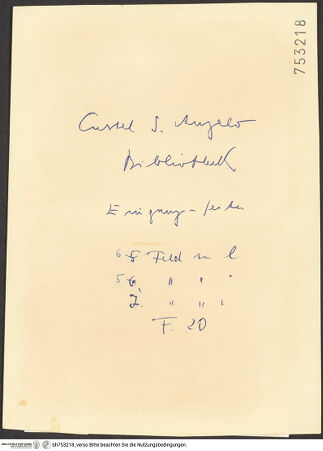 753218
Castel S. Angelo
Bibliothek
Eingang-
6 8 Feld l
5 6, " " "
7. " " "
F. 20
bh753218, verso Bitte beachten Sie die Nutzungsbedingungen.